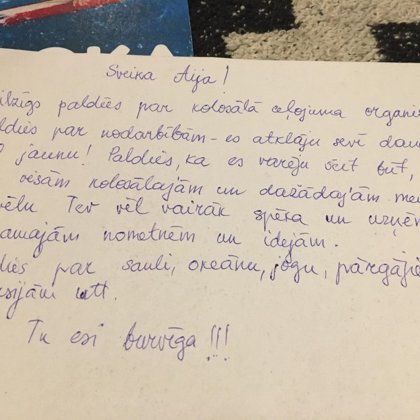 Sveika Aija!
ilzīgs paldies par kolosālā ceļojuma organi
ldies par nodarbībām - es atklāju sevī dau
jaunu! Paldies, ka es varēju šeit būt,
vēšām kolosālajām un dažādajām me
vēlu Tev vēl vairāk spēka un uzņēm
amajām nometnēm un idejām.
dies par sauli, okeānu, jogu, pārgājie
rsijām utt.
Tu esi burvīga!!!